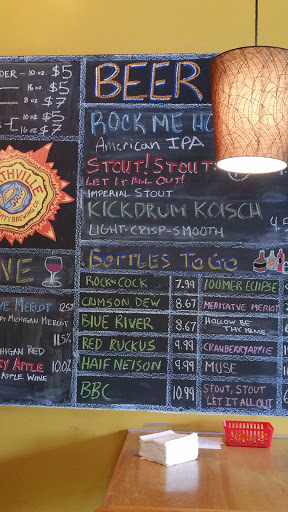 BEER
DER - 10 oz $5
16 oz $5
8 oz $7
16 oz $7
ROCK ME
AMERICAN IPA
STOUT! STOUT
LET IT ALL OUT!
IMPERIAL STOUT
KICKDRUM KOISCH
LIGHT-CRISP-SMOOTH
THVILLE
BREWING CO.
NE
VE MERLOT 12.5%
MICHIGAN MERLOT
11.5%
HIGAN RED
RY APPLE 10.0%
APPLE WINE
BOTTLES TO GO
ROCK N COCK 7.99
CRIMSON DEW 8.67
BLUE RIVER 8.67
RED RUCKUS 9.99
HALF NELSON 9.99
BBC 10.99
ECLIPSE
MEDITATIVE MERLOT
HOLLOW BE
THY NAME
CRANBERRY APPLE
MUSE
STOUT, STOUT
LET IT ALL OUT